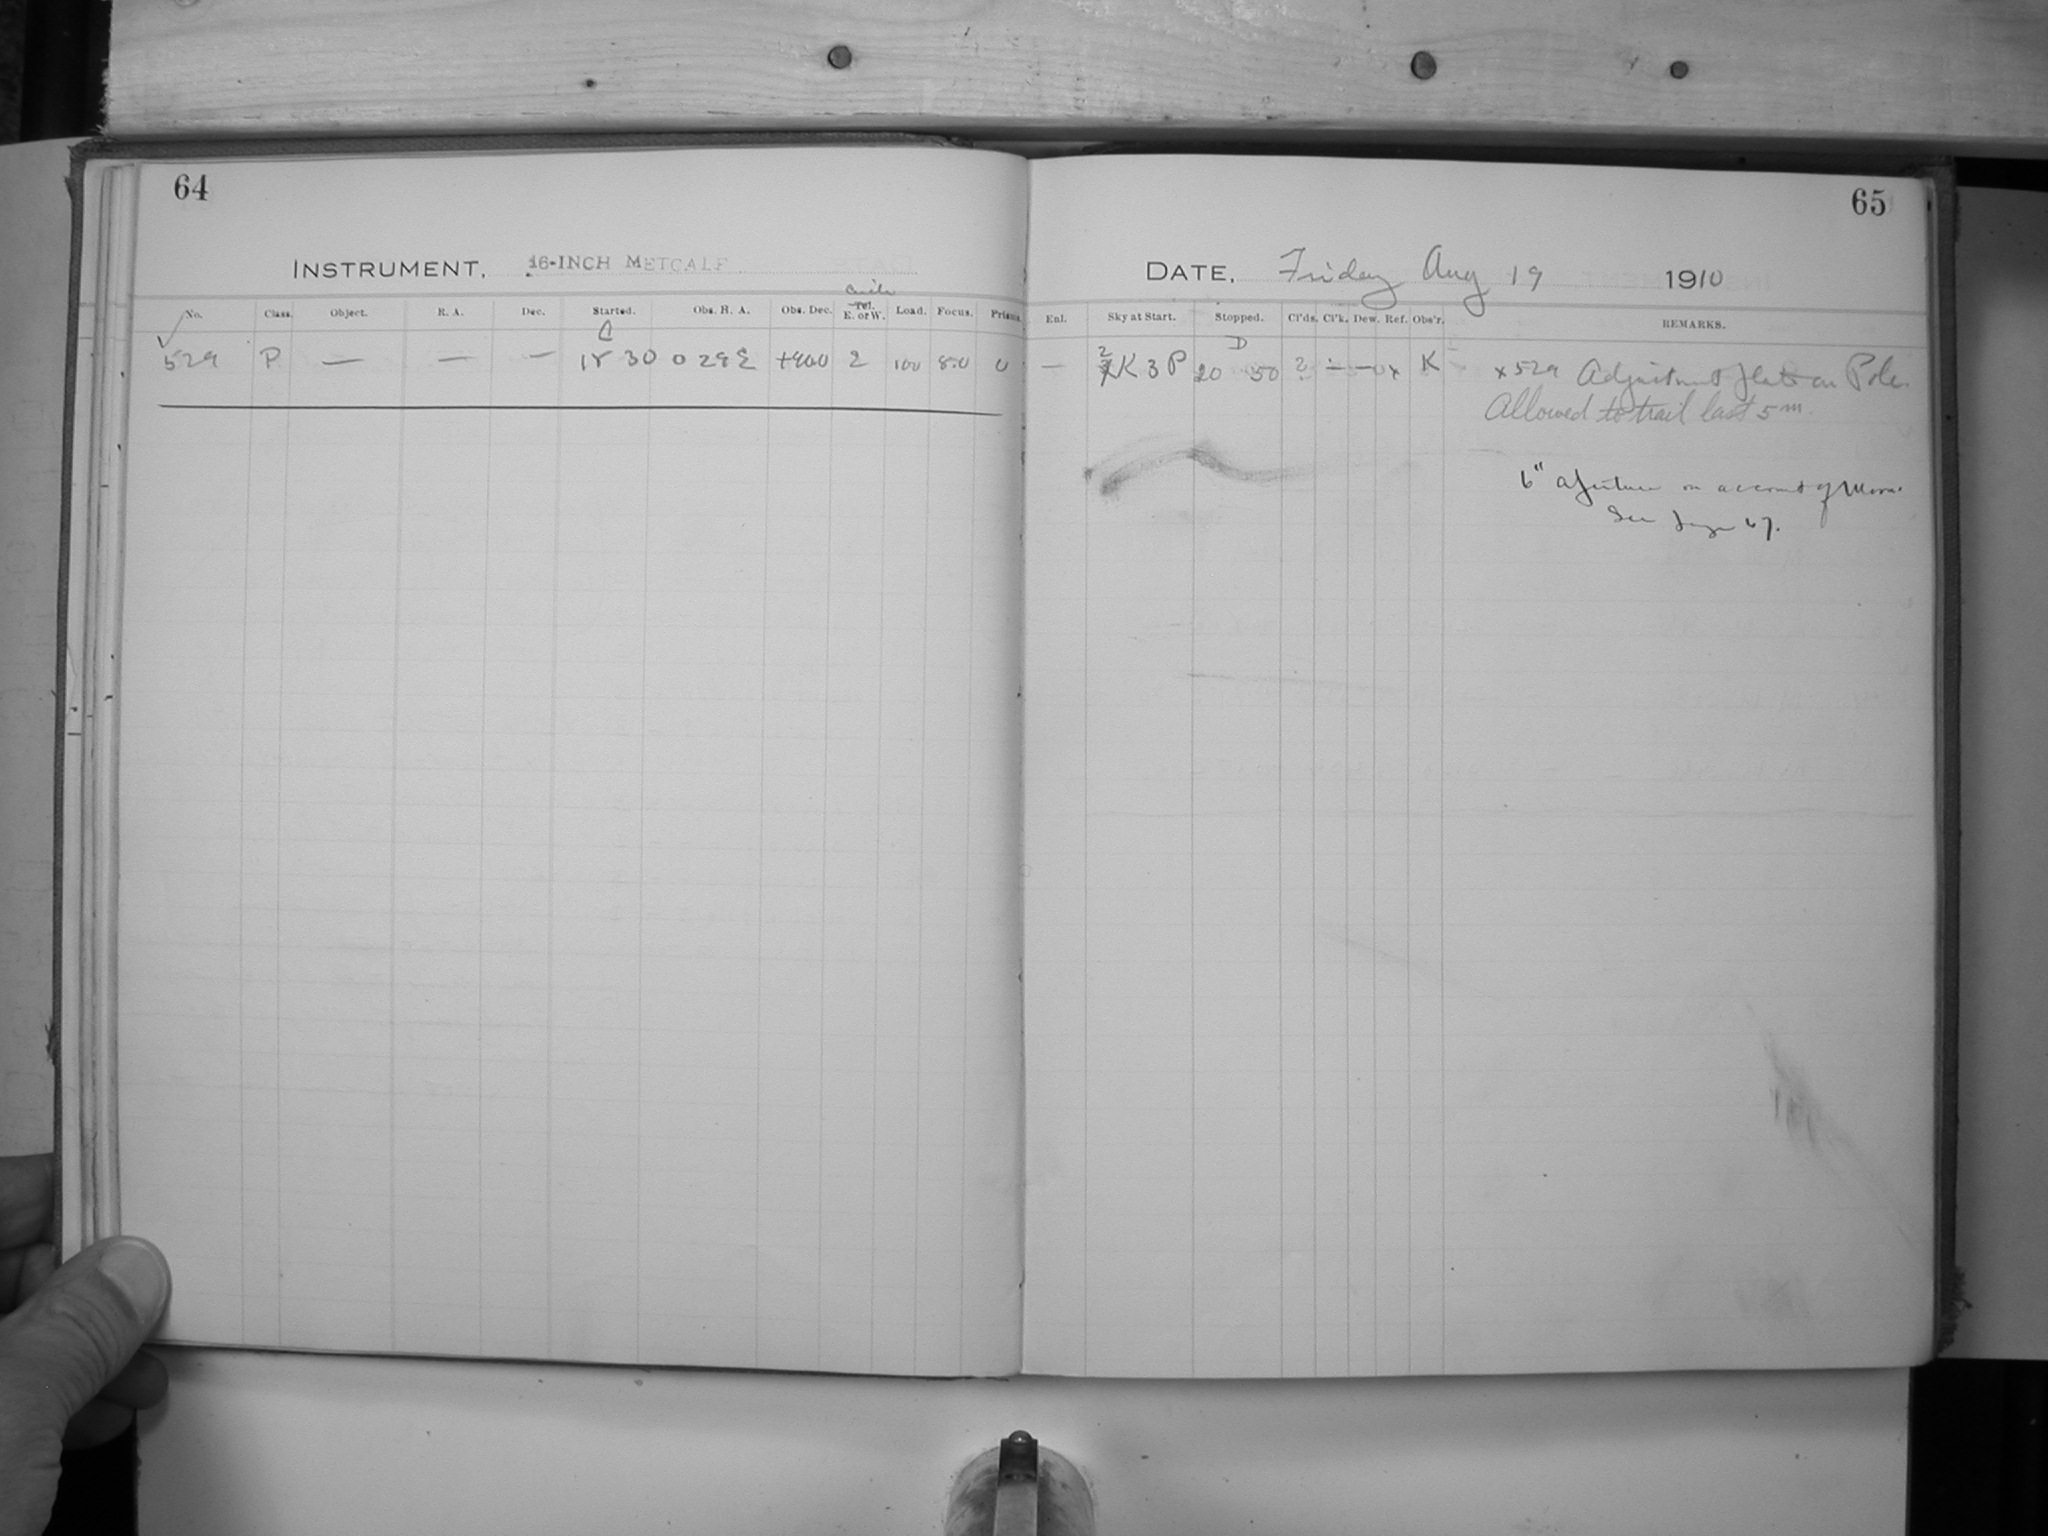 64
INSTRUMENT, 16-INCH METCALF
Circle
No. Class. Object. R. A. Dec. Started. Obs. H. A. Obs. Dec. Tel. E. or W. Load. Focus. Prisms.
C
529 P — — — 18 30 0 29 E +90.0 2 100 8.0 0
65
DATE, Friday Aug 19 1910
Enl. Sky at Start. Stopped. Cl'ds. Cl'k. Dew. Ref. Obs'r. REMARKS.
D
— 2 K 3 P 20 50 2 — — x K x 529 Adjustment plate on Pole.
Allowed to trail last 5m.
6" aperture on account of Moon.
See page 67.